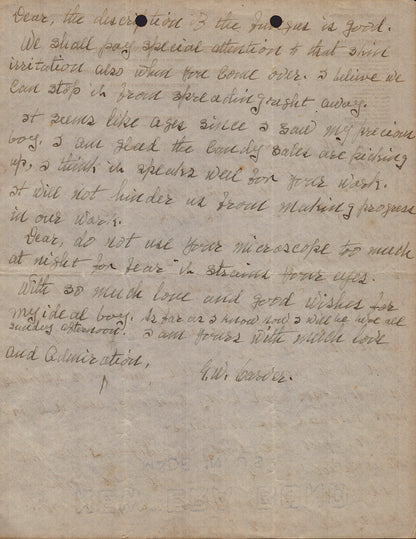 Dear, the description of the fungus is good.
We shall pay special attention to that skin
irritation also when you come over. I believe we
can stop it from spreading right away.
It seems like ages since I saw my precious
boy, I am glad the candy sales are picking
up, I think it speaks well for your work.
It will not hinder us from making progress
in our work.
Dear, do not use your microscope too much
at night for fear it strains your eyes.
With so much love and good wishes for
my ideal boy. As far as I know now I will be here all
Sunday afternoon. I am yours with much love
and admiration,
G.W. Carver.